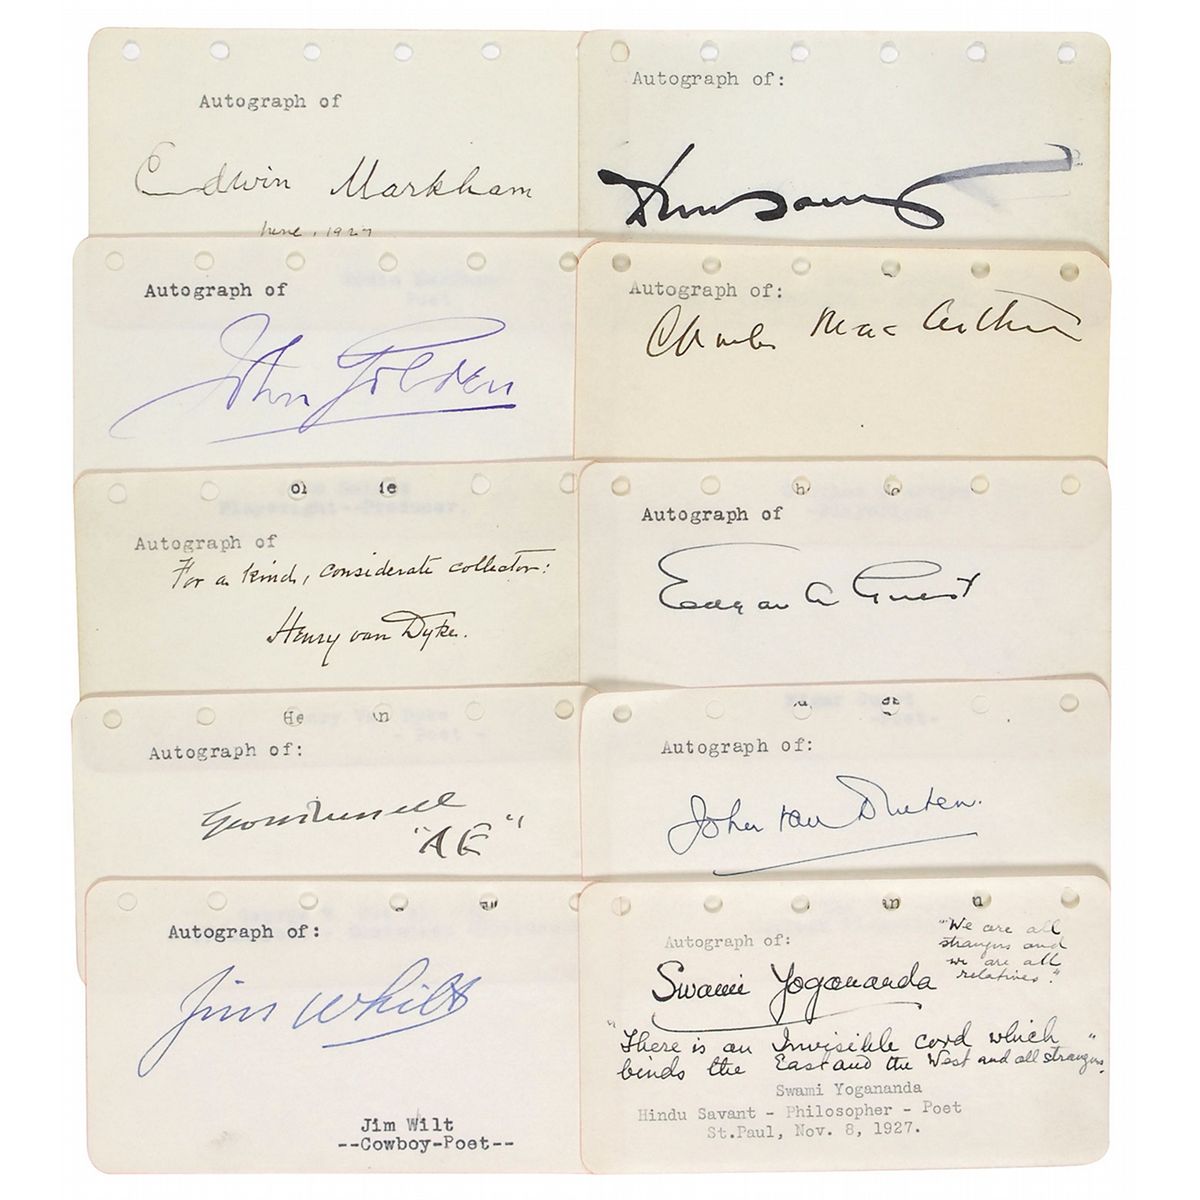 Autograph of
Edwin Markham
June, 1927
Autograph of:
Autograph of
John Golden
Autograph of:
Charles MacArthur
Autograph of
For a kind, considerate collector:
Henry van Dyke.
Autograph of
Edgar A Guest
Autograph of:
Geo W Russell
"AE"
Autograph of:
John van Druten.
Autograph of:
Jim Whilt
Jim Wilt
--Cowboy-Poet--
Autograph of:
"We are all
strangers and
we are all
relatives."
Swami Yogananda
"There is an Invisible cord which
binds the East and the West and all strangers."
Swami Yogananda
Hindu Savant - Philosopher - Poet
St.Paul, Nov. 8, 1927.